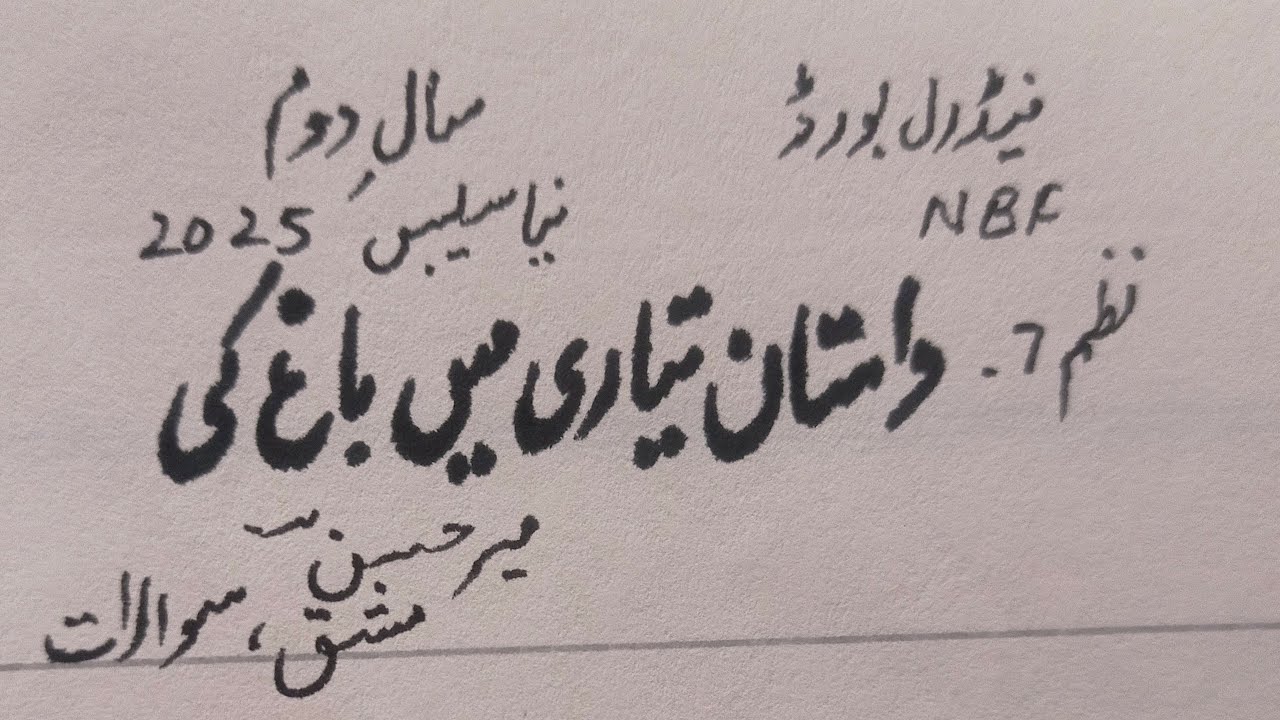 فیڈرل بورڈ سالِ دوم
NBF نیا سیلیبس 2025
نظم 7۔ داستان تیاری میں باغ کی
میر حسنؔ
مشق، سوالات